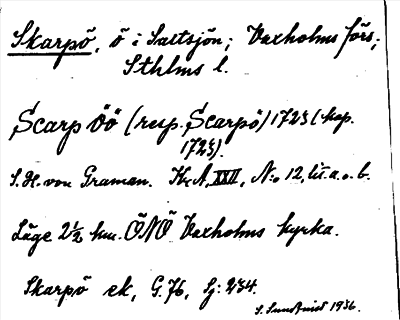 Skarpö, ö i Saltsjön; Vaxholms förs;
Sthlms l.
Scarp Öö (resp. Scarpö) 1723 (kop.
1724).
S. H. von Graman. Kr. A, XXII, N:o 12, lit. a. o. b.
Läge 2½ km. ÖNÖ Vaxholms kyrka.
Skarpö ek, G. 76, Sj: 234.
S. Sundquist 1936.